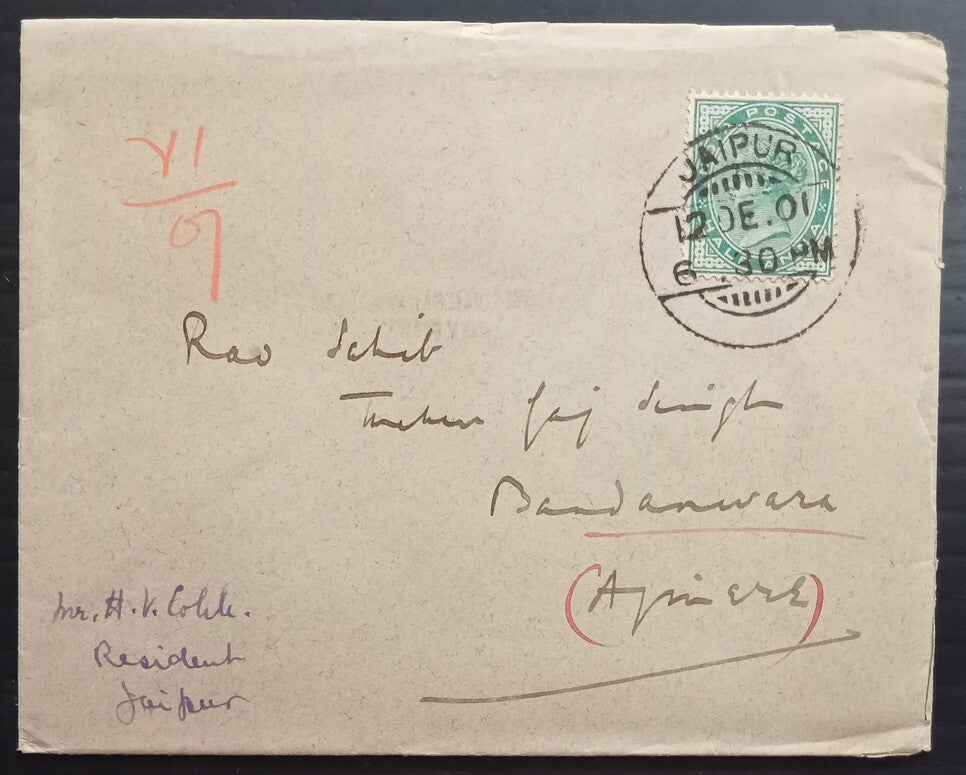 POSTAGE
HALF ANNA
JAIPUR
12 DE. 01
6 .30 PM
Rao Sahib
Thakur Gaj Singh
Bandanwara
(Ajmere)
Mr. H. V. Cobb.
Resident
Jaipur